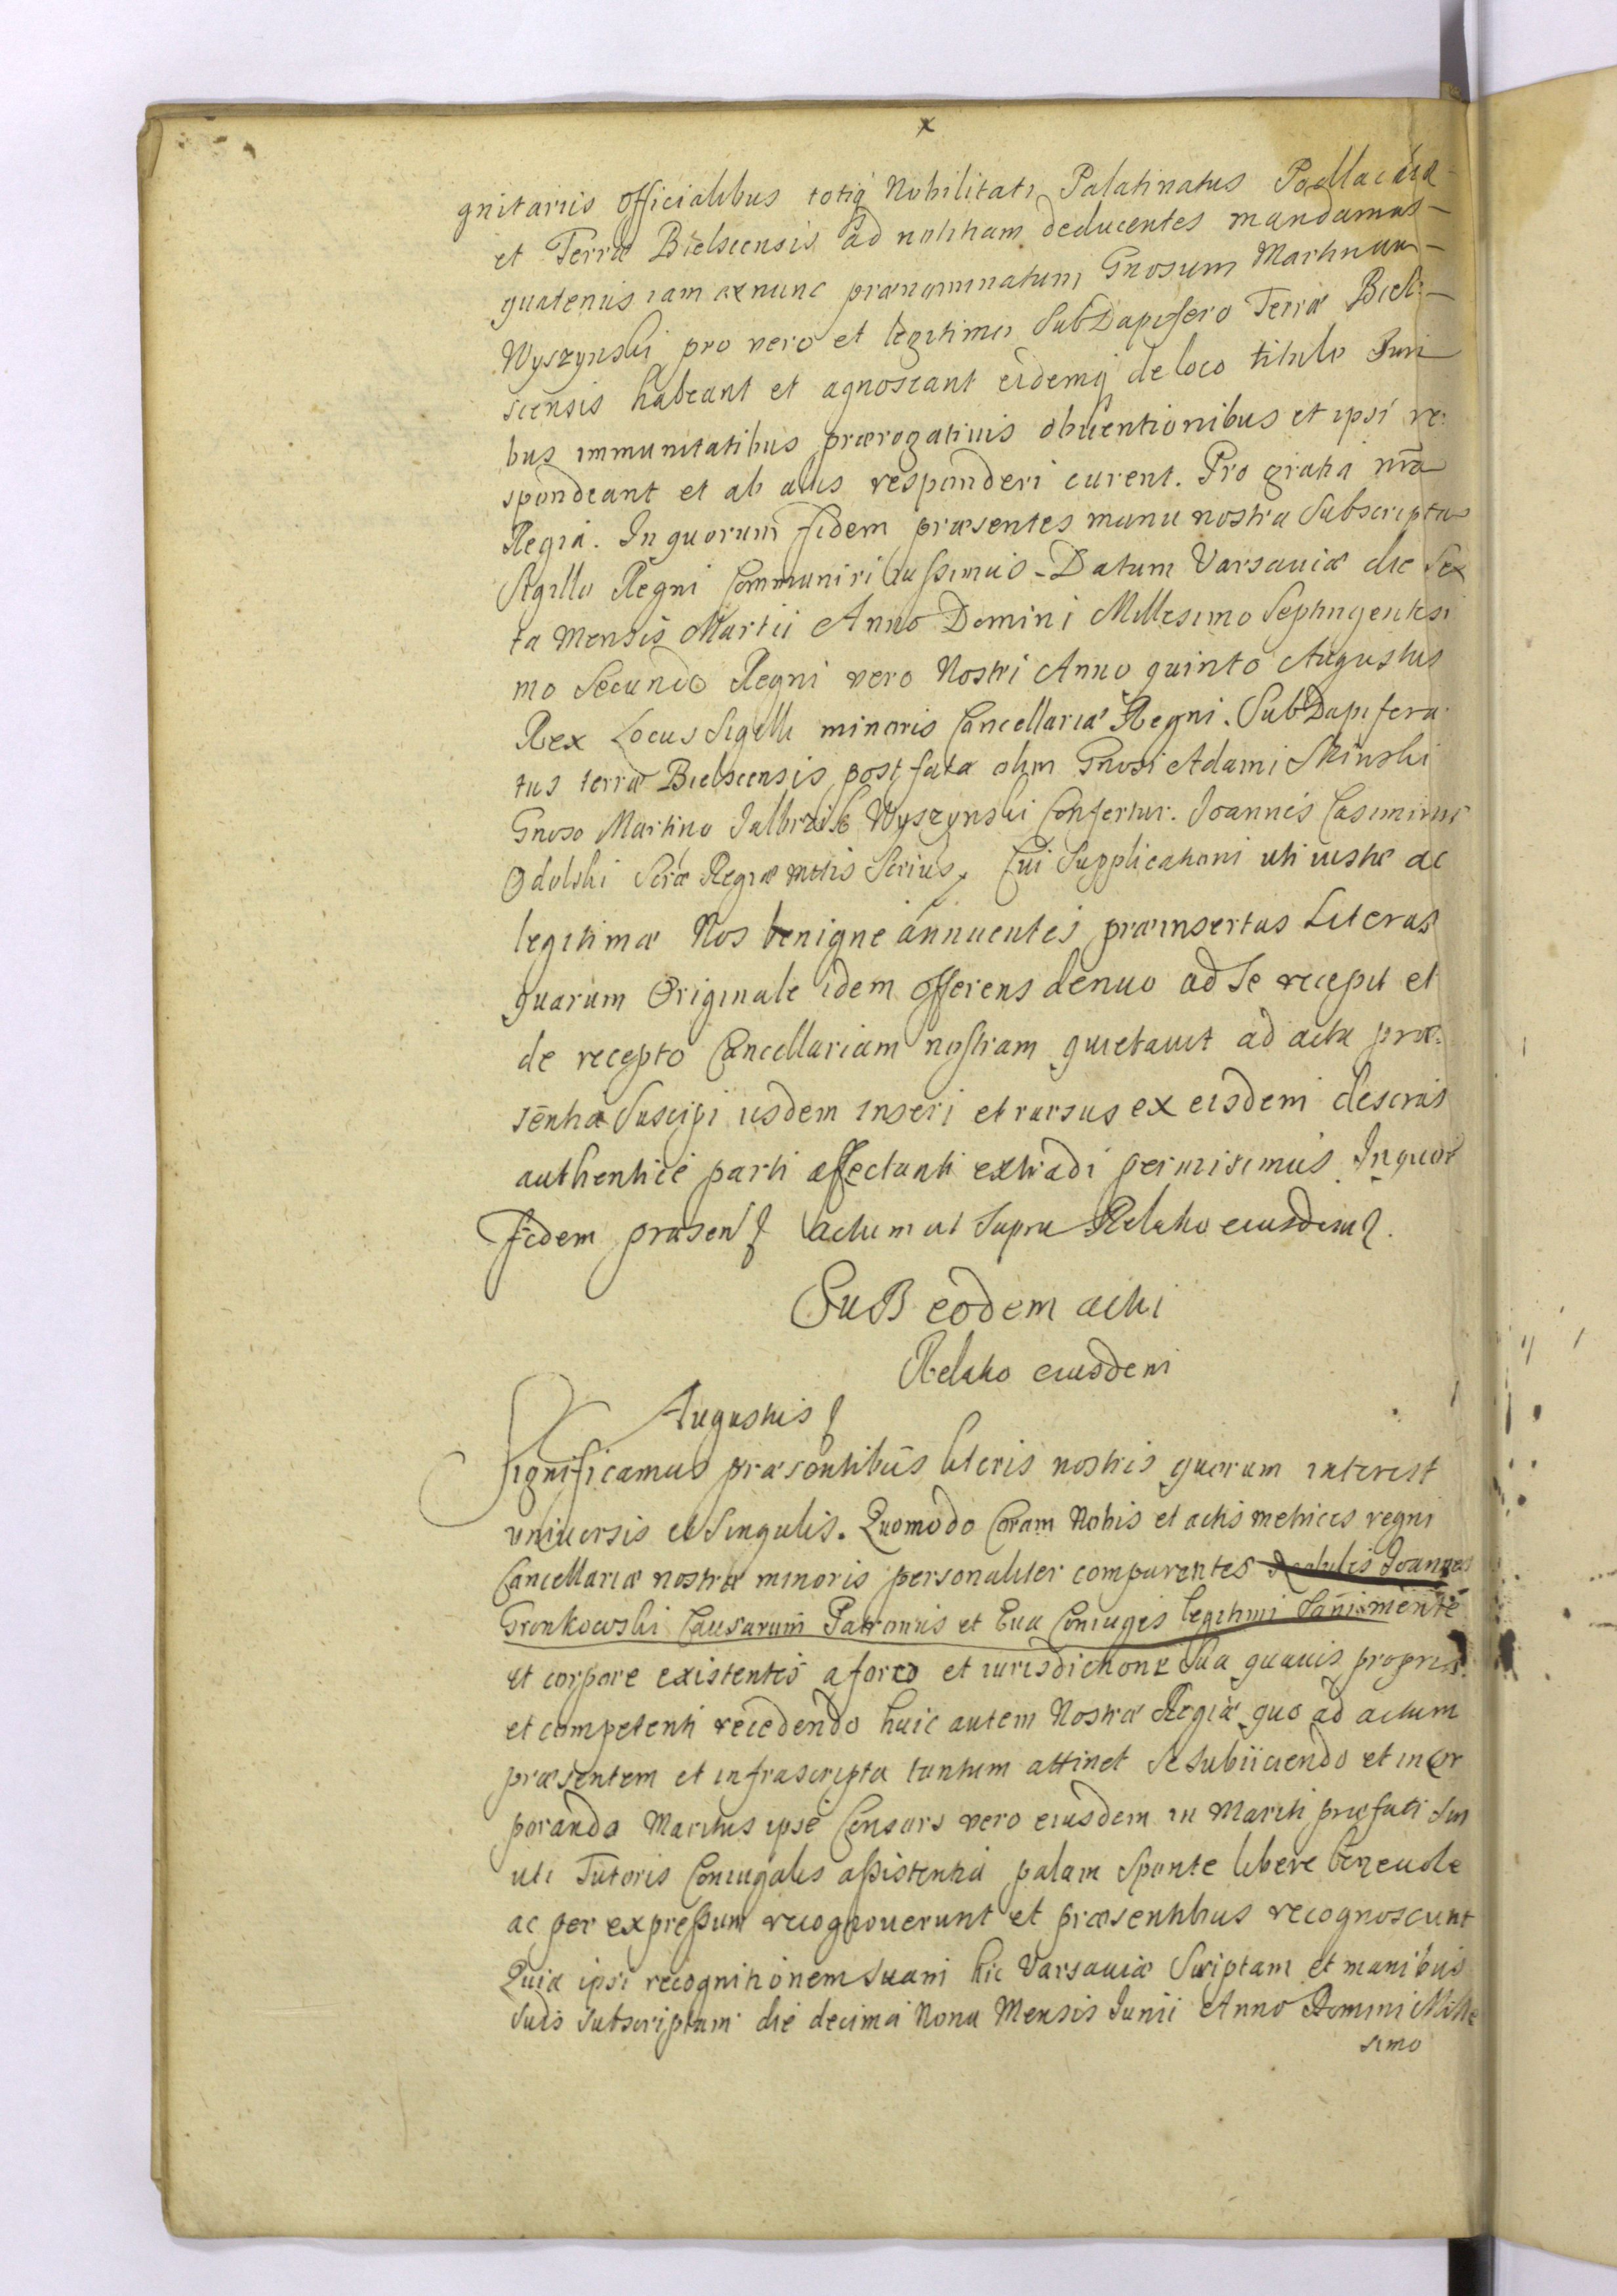 x
gnitariis Officialibus totiq Nobilitati Palatinatus Podlachia
et Terræ Bielscensis ad notitiam deducentes mandamus
quatenus iam ex nunc prænominatum Gnosum Martinum
Wyszynski pro vero et legitimo SubDapifero Terræ Biel-
scensis habeant et agnoscant eidemq de loco titulo Juri
bus immunitatibus prærogativis obventionibus et ipsi re-
spondeant et ab aliis responderi curent. Pro gratia nrã
Regia. In quorum fidem præsentes manu nostra Subscriptas
Sigillo Regni Communiri iussimus. Datum Varsaviæ die Sex
ta Mensis Martii Anno Domini Millesimo Septingentesi
mo Secundo Regni vero Nostri Anno quinto Augustus
Rex Locus Sigilli minoris Cancellariæ Regni. SubDapifera-
tus terræ Bielscensis post fata olim Gnosi Adami Skiwski
Gnoso Martino Jalbrzik Wyszynski Confertur. Joannes Casimirus
Odolski Scræ Regiæ mttis Scrius. Cui Supplicationi uti iustæ ac
legitimæ Nos benigne annuentes præinsertas Literas
quarum Originale idem Offerens denuo ad Se recepit et
de recepto Cancellariam nostram quietavit ad acta præ-
sentia Suscipi iisdem inseri et rursus ex eisdem descriis
authentice parti affectanti extradi permisimus. In quor
Fidem præsen Actum ut Supra Relatio eiusdem.
SuB eodem actu
Relatio eiusdem
Augustus
Significamus præsentibus literis nostris quorum interest
universis et Singulis. Quomodo Coram Nobis et actis metrices regni
Cancellariæ nostræ minoris personaliter comparentes Nobilis Joannes
Gronkowski Causarum Patronus et Eva Coniuges legitimi Sani mente
et corpore existentes a foro et iurisdictione Sua quavis propria
et competenti recedendo huic autem Nostræ Regiæ quo ad actum
præsentem et infrascripta tantum attinet Se subiiciendo et incor
porando Maritus ipse Consors vero eiusdem in Mariti præfati Sui
uti Tutoris Coniugalis assistentia palam Sponte libere benevole
ac per expressum recognoverunt et præsentibus recognoscunt
Quia ipsi recognitionem suam hic Varsaviæ Scriptam et manibus
suis subscriptam die decima Nona Mensis Junii Anno Domini Mille
simo